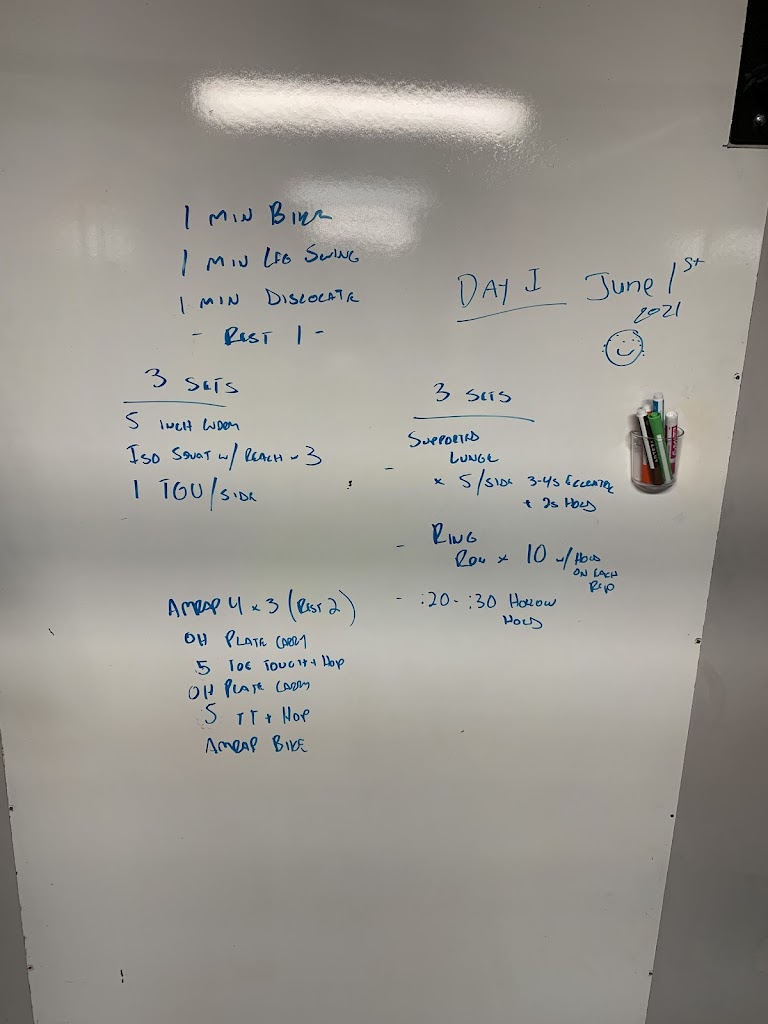 1 MIN BIKE
1 MIN LEG SWING
1 MIN DISLOCATE
- REST 1 -
DAY I June 1st
2021
3 SETS
5 INCH WORM
ISO SQUAT w/ REACH x 3
1 TGU/SIDE
3 SETS
SUPPORTED
LUNGE
- x 5/SIDE 3-4s ECCENTRIC
+ 2s HOLD
- RING
ROW x 10 w/ HOLD
ON EACH
REP
- :20-:30 HOLLOW
HOLD
AMRAP 4 x 3 (REST 2)
OH PLATE CARRY
5 TOE TOUCH + HOP
OH PLATE CARRY
5 TT + HOP
AMRAP BIKE